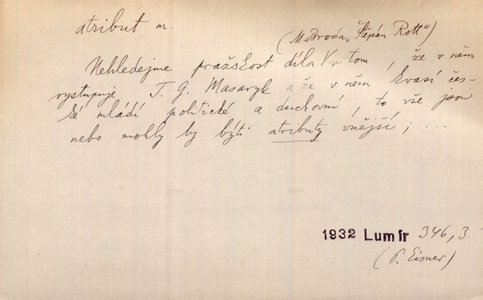 atribut m.
(M. Broda „Štěpán Rott“)
Nehledejme pražskost díla v tom, že v něm
vystupuje T. G. Masaryk a že v něm kvasí čes-
ké mládí politické a duchovní, to vše jsou
nebo mohly by býti atributy vnější; ...
1932 Lumír 346, 3.
(P. Eisner)